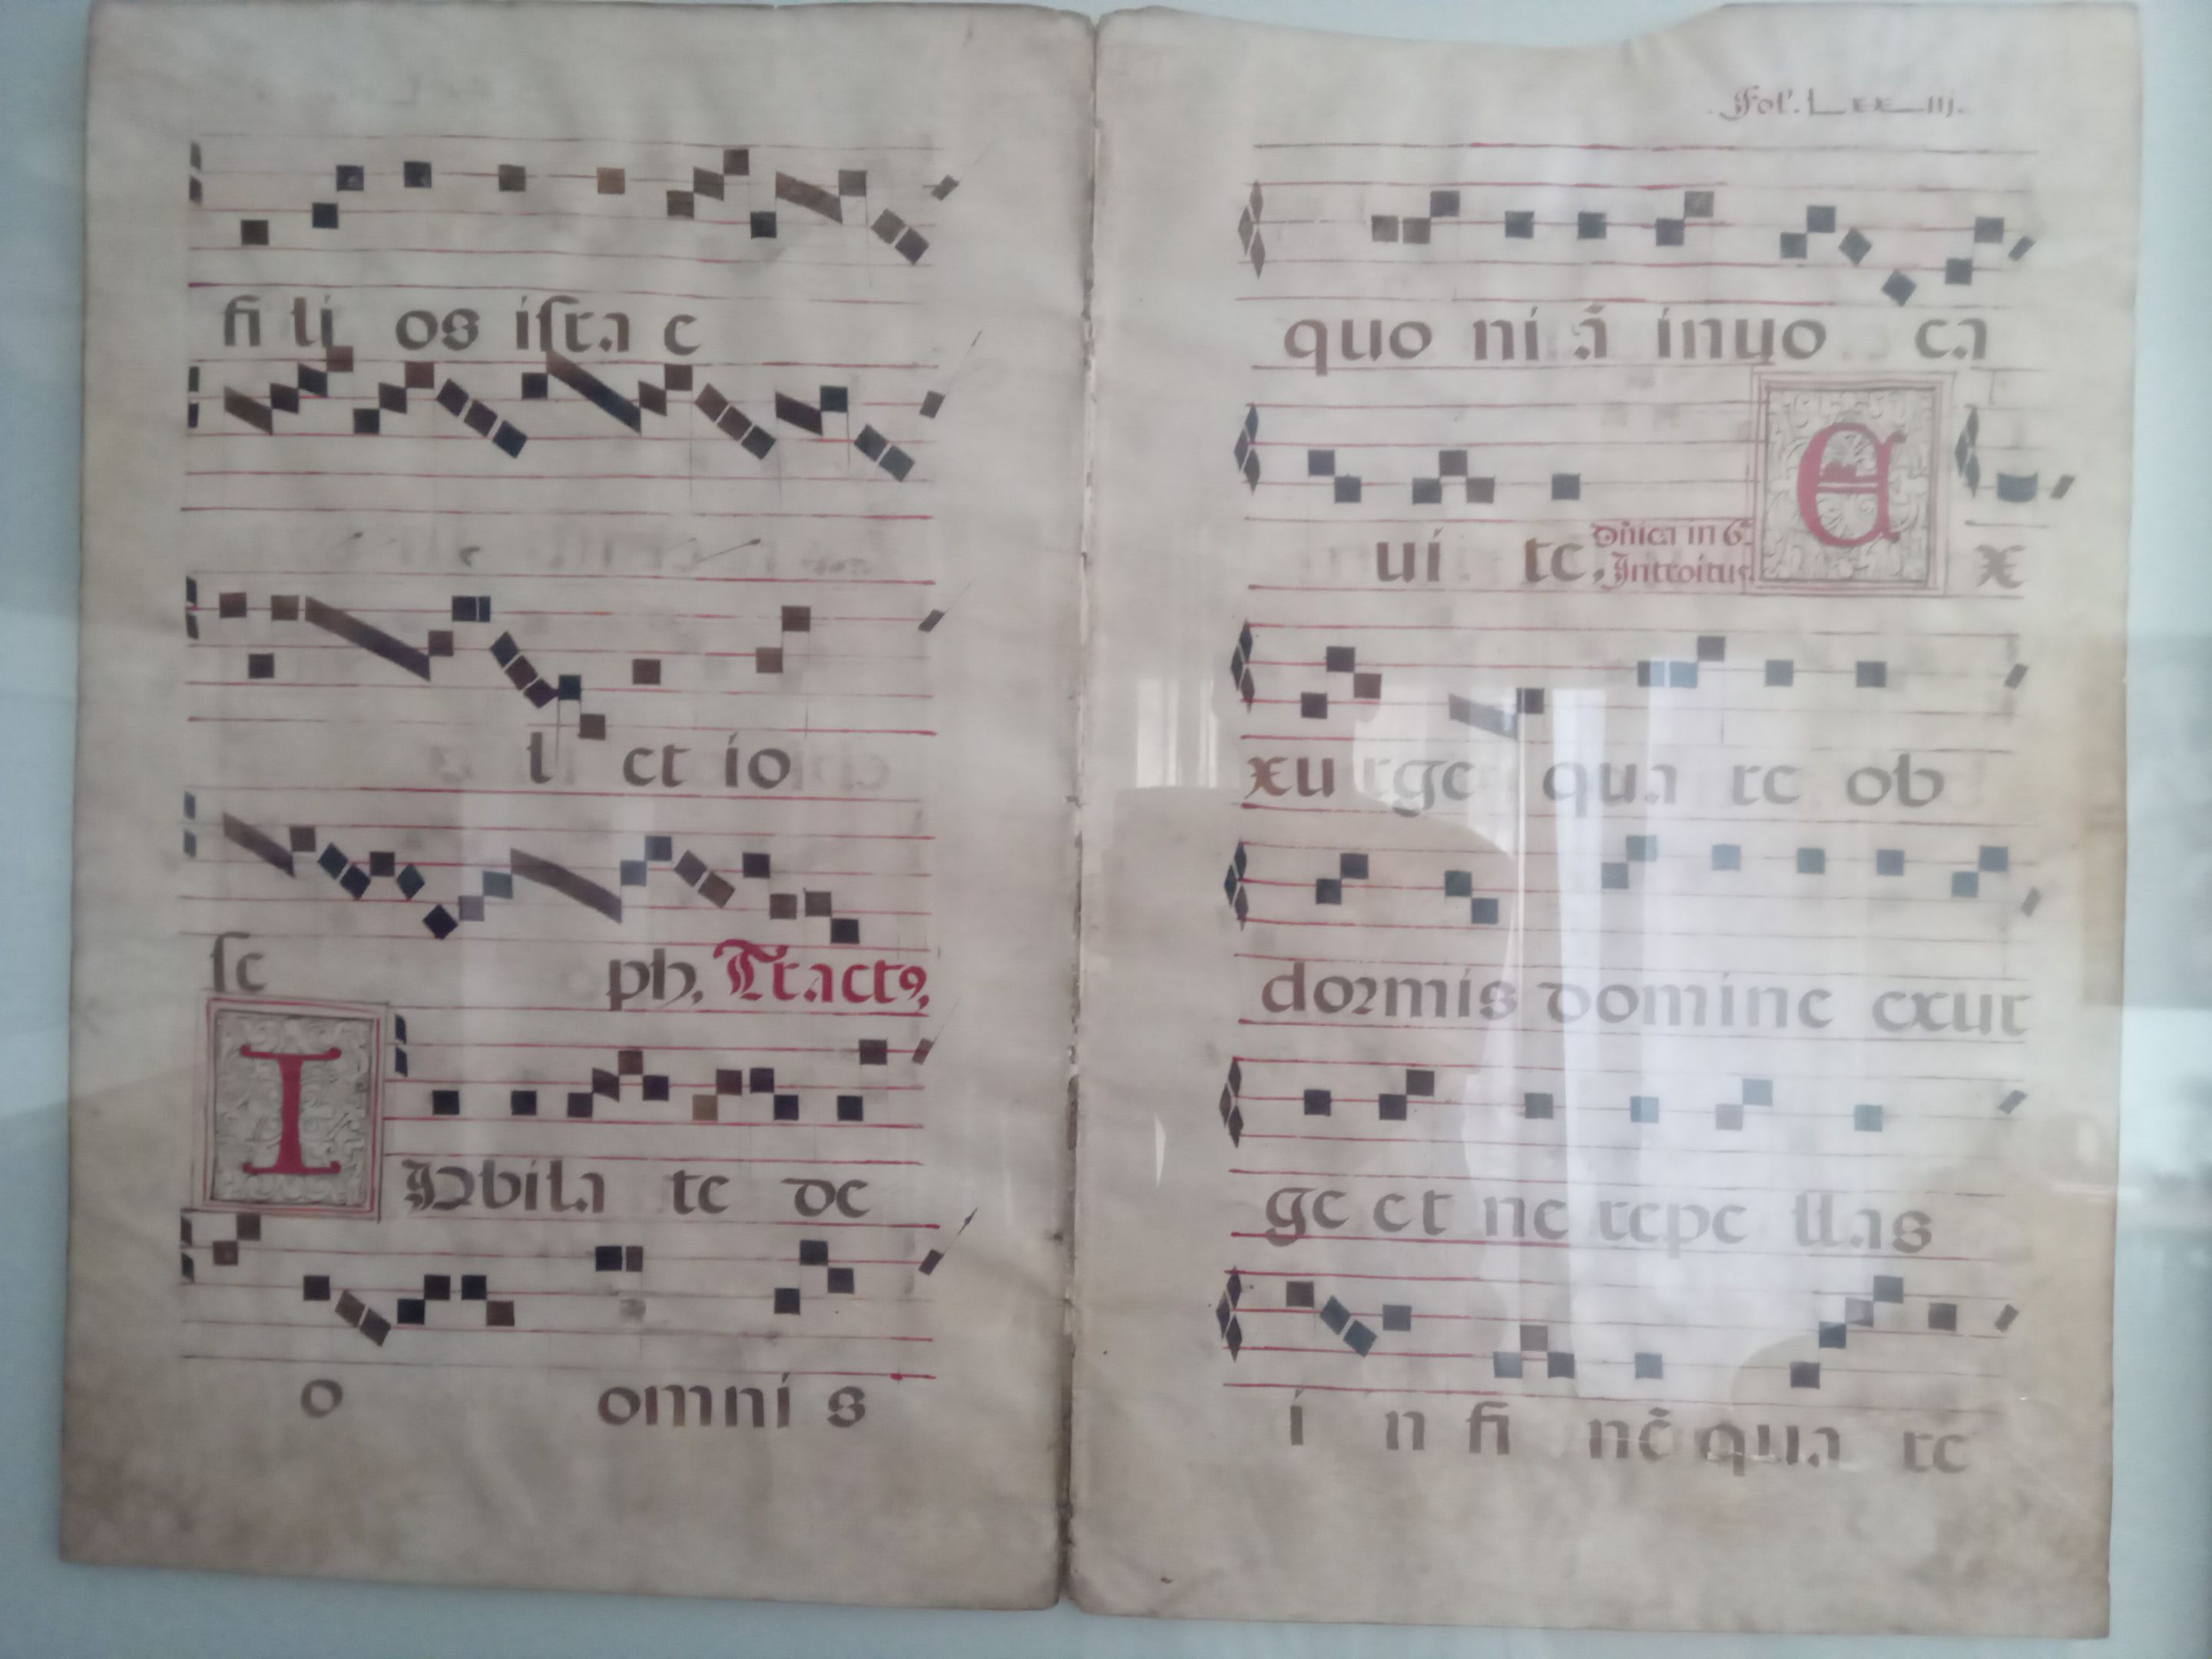 fi li os iſra e
l et io
ſe ph, Tractꝰ,
I Vbila te de
o omni s
Fol. Lxx iij.
quo ni ã inuo ca
ui te, Dñica in
Introitus E x
xu rge qua re ob
dormis domine exur
ge et ne repe llas
i n fi nẽ qua re